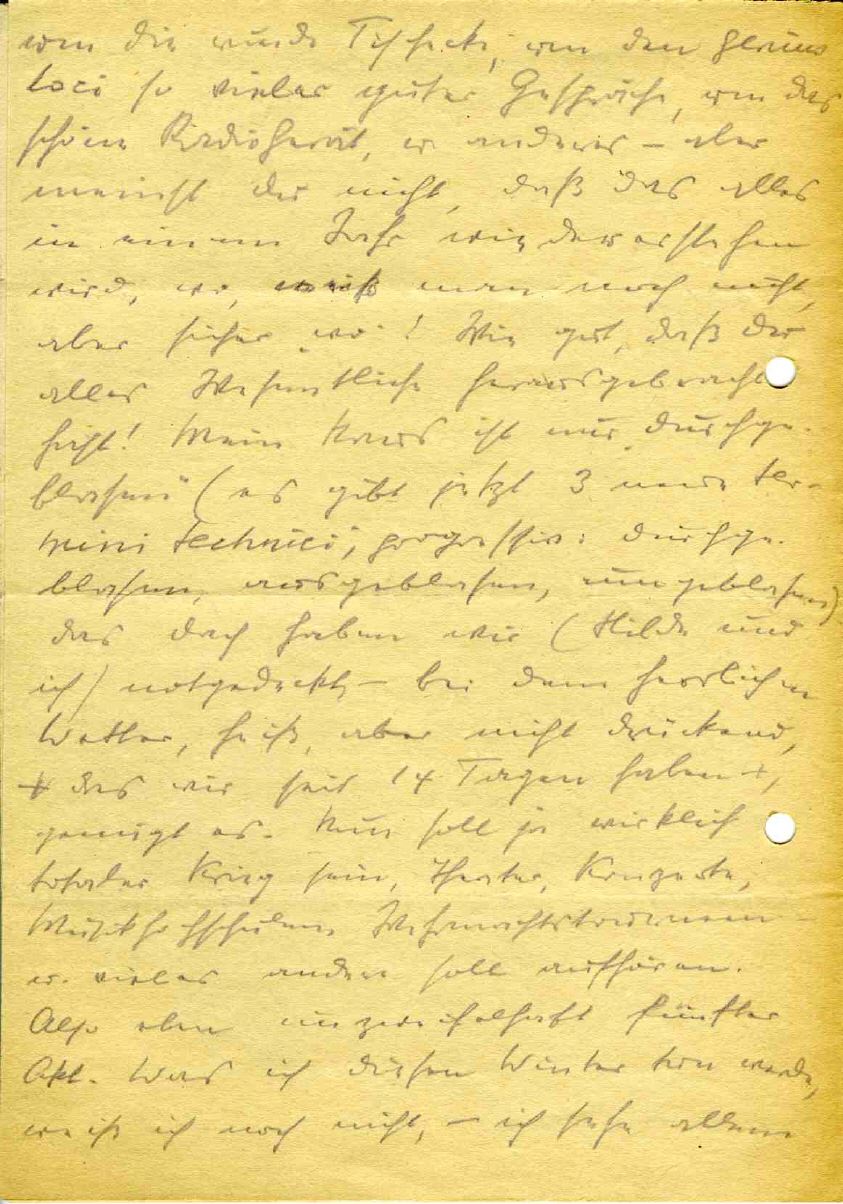 um die runde Tischecke, um den genius
loci so vieler guter Gespräche, um das
schöne Radiogerät, u. anderes – aber
meinst du nicht, daß das alles
in einem Jahr wiedererstehen
wird, wo, weiß man noch nicht,
aber sicher „wo"! Wie gut, daß du
alles Wesentliche herausgebracht
hast! Mein Haus ist nur „durchge-
blasen" (es gibt jetzt 3 neue ter-
mini technici, progressiv: durchge-
blasen, ausgeblasen, umgeblasen)
das Dach haben wir (Hilde und
ich) notgedeckt, – bei dem herrlichen
Wetter, heiß, aber nicht drückend,
+ das wir seit 14 Tagen haben +,
genügt es. Nun soll ja wirklich
totaler Krieg sein, Theater, Konzerte,
Musikhochschulen, Wehrmachtstourneen –
u. vieles andere soll aufhören.
Also eben unzweifelhaft fünfter
Akt. Was ich diesen Winter tun werde,
weiß ich noch nicht, – ich sehe allem